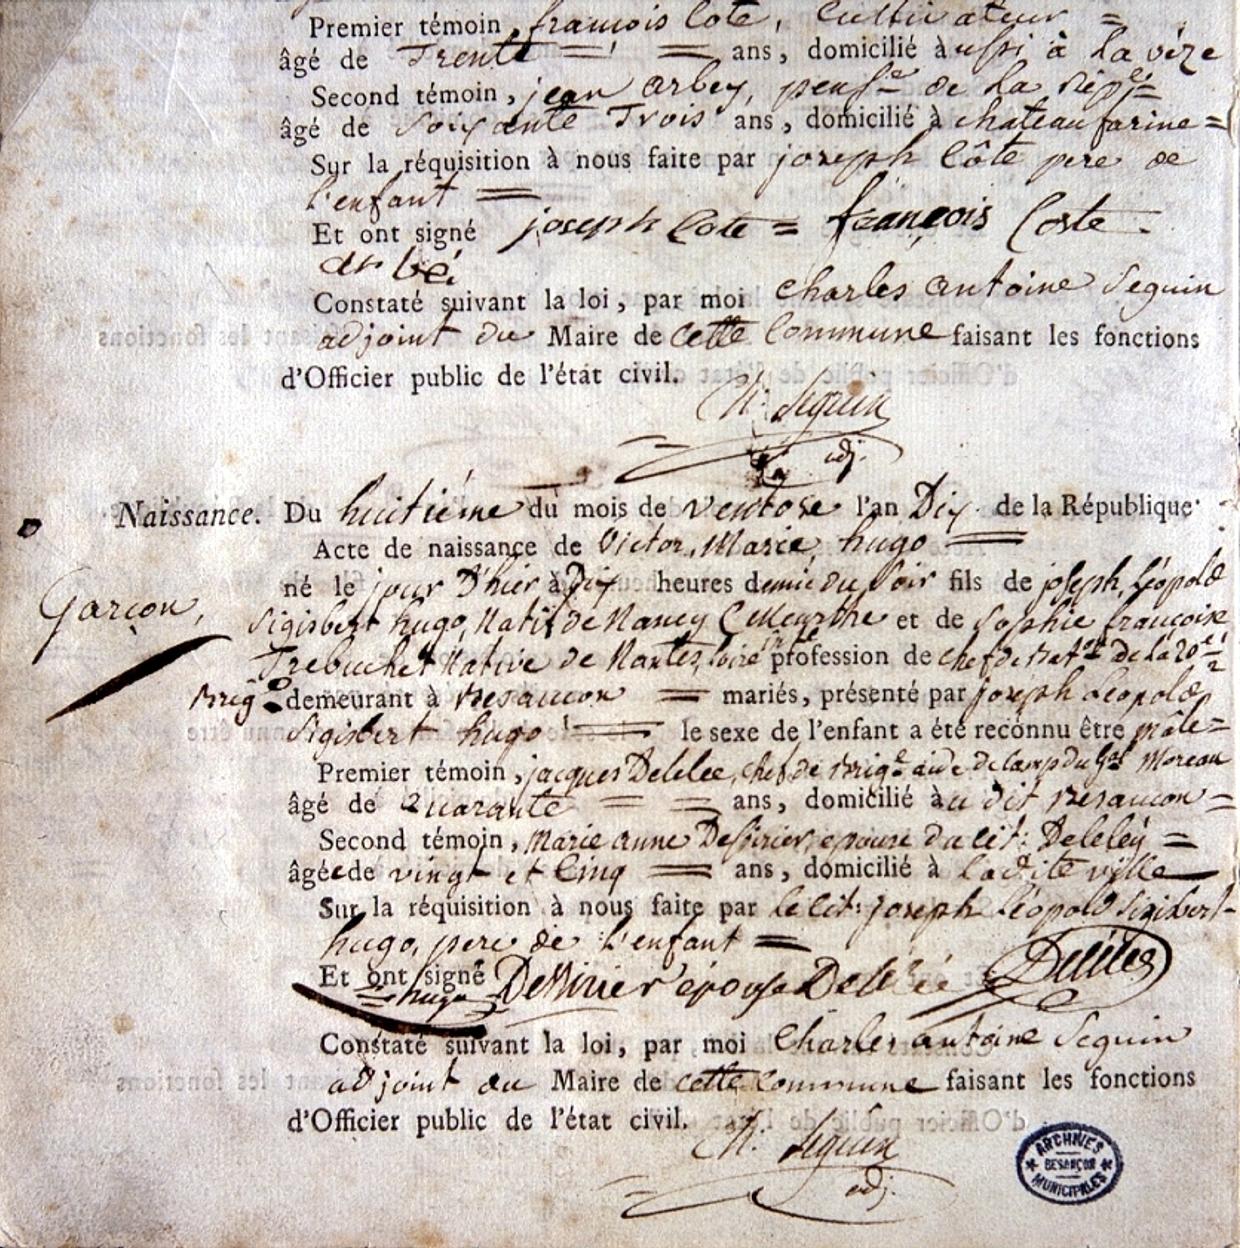 Premier témoin, françois Cote, Cultivateur =
âgé de Trente = = ans, domicilié à ussi à la vèze
Second témoin, jean arbey, pens.re de la rép.e =
âgé de soixante Trois ans, domicilié à chateaufarine =
Sur la réquisition à nous faite par joseph Côte pere de
l'enfant =
Et ont signé joseph Cote = françois Coste
arbéi
Constaté suivant la loi, par moi Charles antoine Seguin
adjoint du Maire de cette Commune faisant les fonctions
d'Officier public de l'état civil.
Ch. Seguin
adj.
Naissance. Du huitiéme du mois de ventose l'an Dix de la République
Acte de naissance de Victor, Marie, hugo =
né le jour D'hier à Dix heures demie du soir fils de joseph, léopold
Garçon,
Sigisbert hugo, Natif de Nancy (Meurthe et de Sophie françoise
Trebuchet Native de Nantes, loire profession de chef de Bat.on De la 20.e
Brig. demeurant à Besancon = mariés, présenté par joseph Leopold
Sigisbert hugo = le sexe de l'enfant a été reconnu être mâle =
Premier témoin, jacques Delelee, chef de Brig.e aide de camp du G.al Moreau
âgé de Quarante = = ans, domicilié àu dit Besancon =
Second témoin, Marie anne Dessirier, epouse du cit: Deleley =
âgée de vingt et Cinq = ans, domicilié à la dite ville
Sur la réquisition à nous faite par le cit: joseph Léopold Sigisbert
hugo, pere de l'enfant =
Et ont signé Dessirier épouse Delelée Delelee
hugo
Constaté suivant la loi, par moi Charles antoine Seguin
adjoint du Maire de cette Commune faisant les fonctions
d'Officier public de l'état civil.
Ch. Seguin
adj.
ARCHIVES
BESANÇON
MUNICIPALES